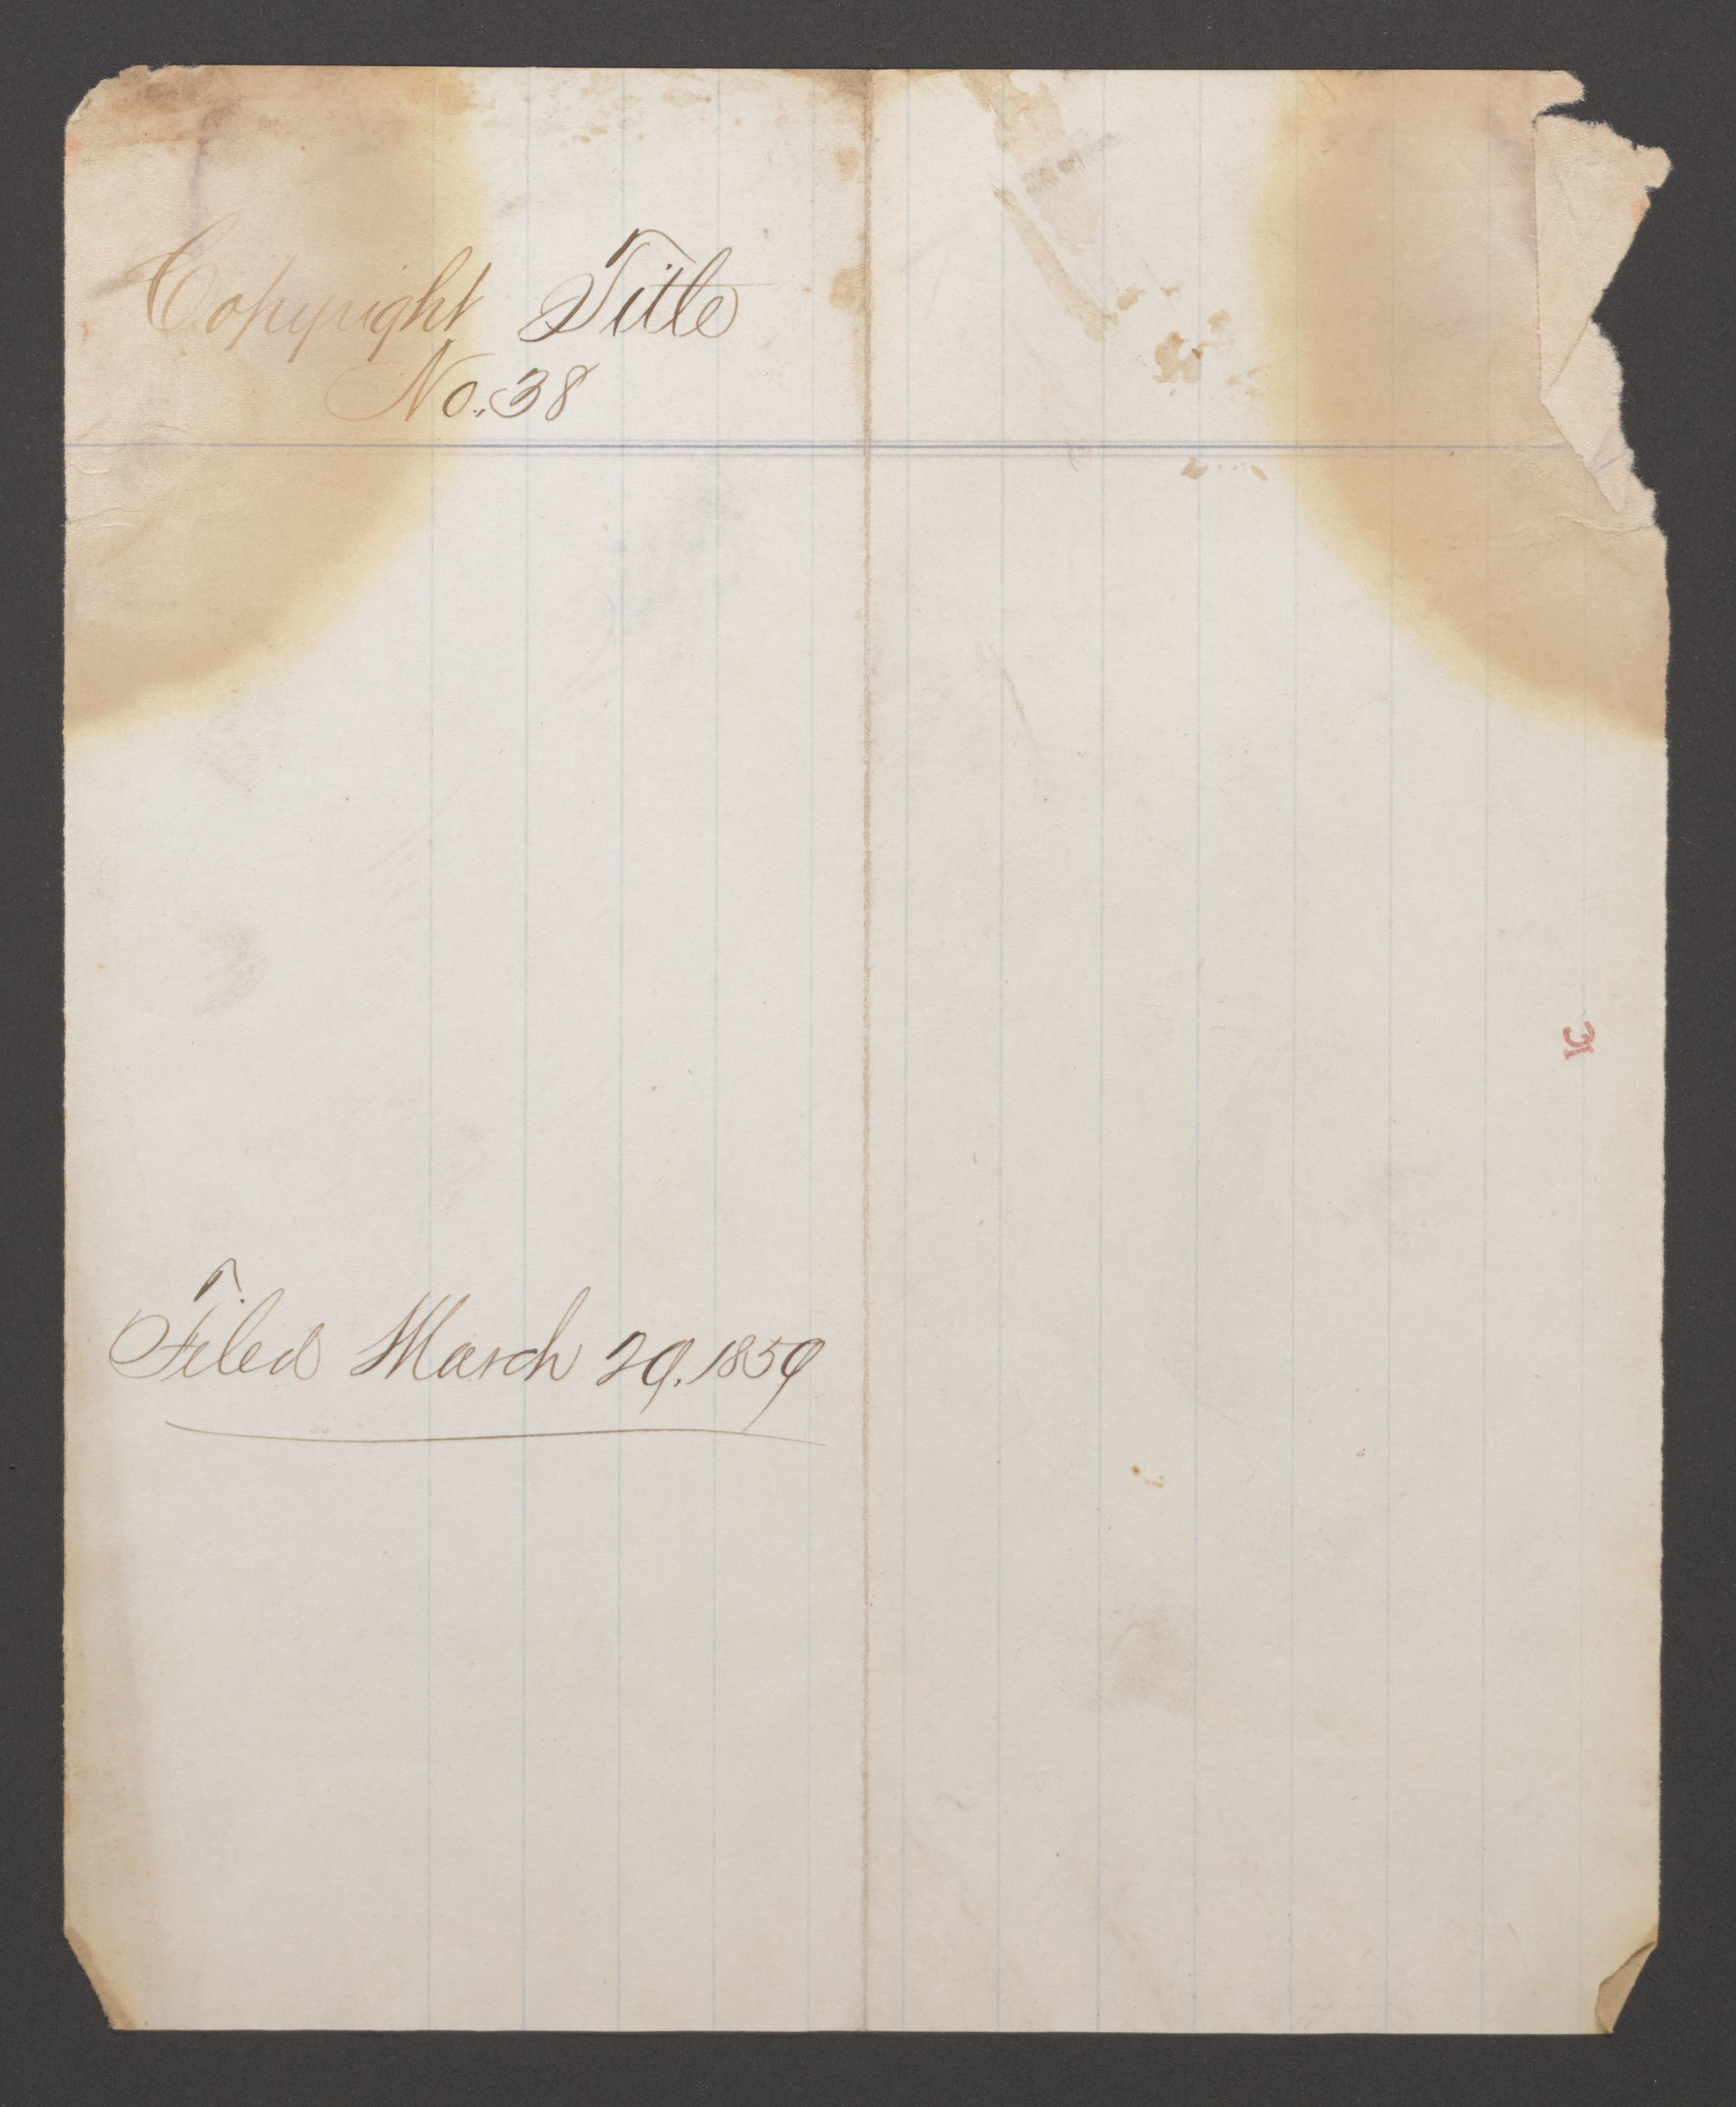 Copyright Title
No. 38
Filed March 29. 1859